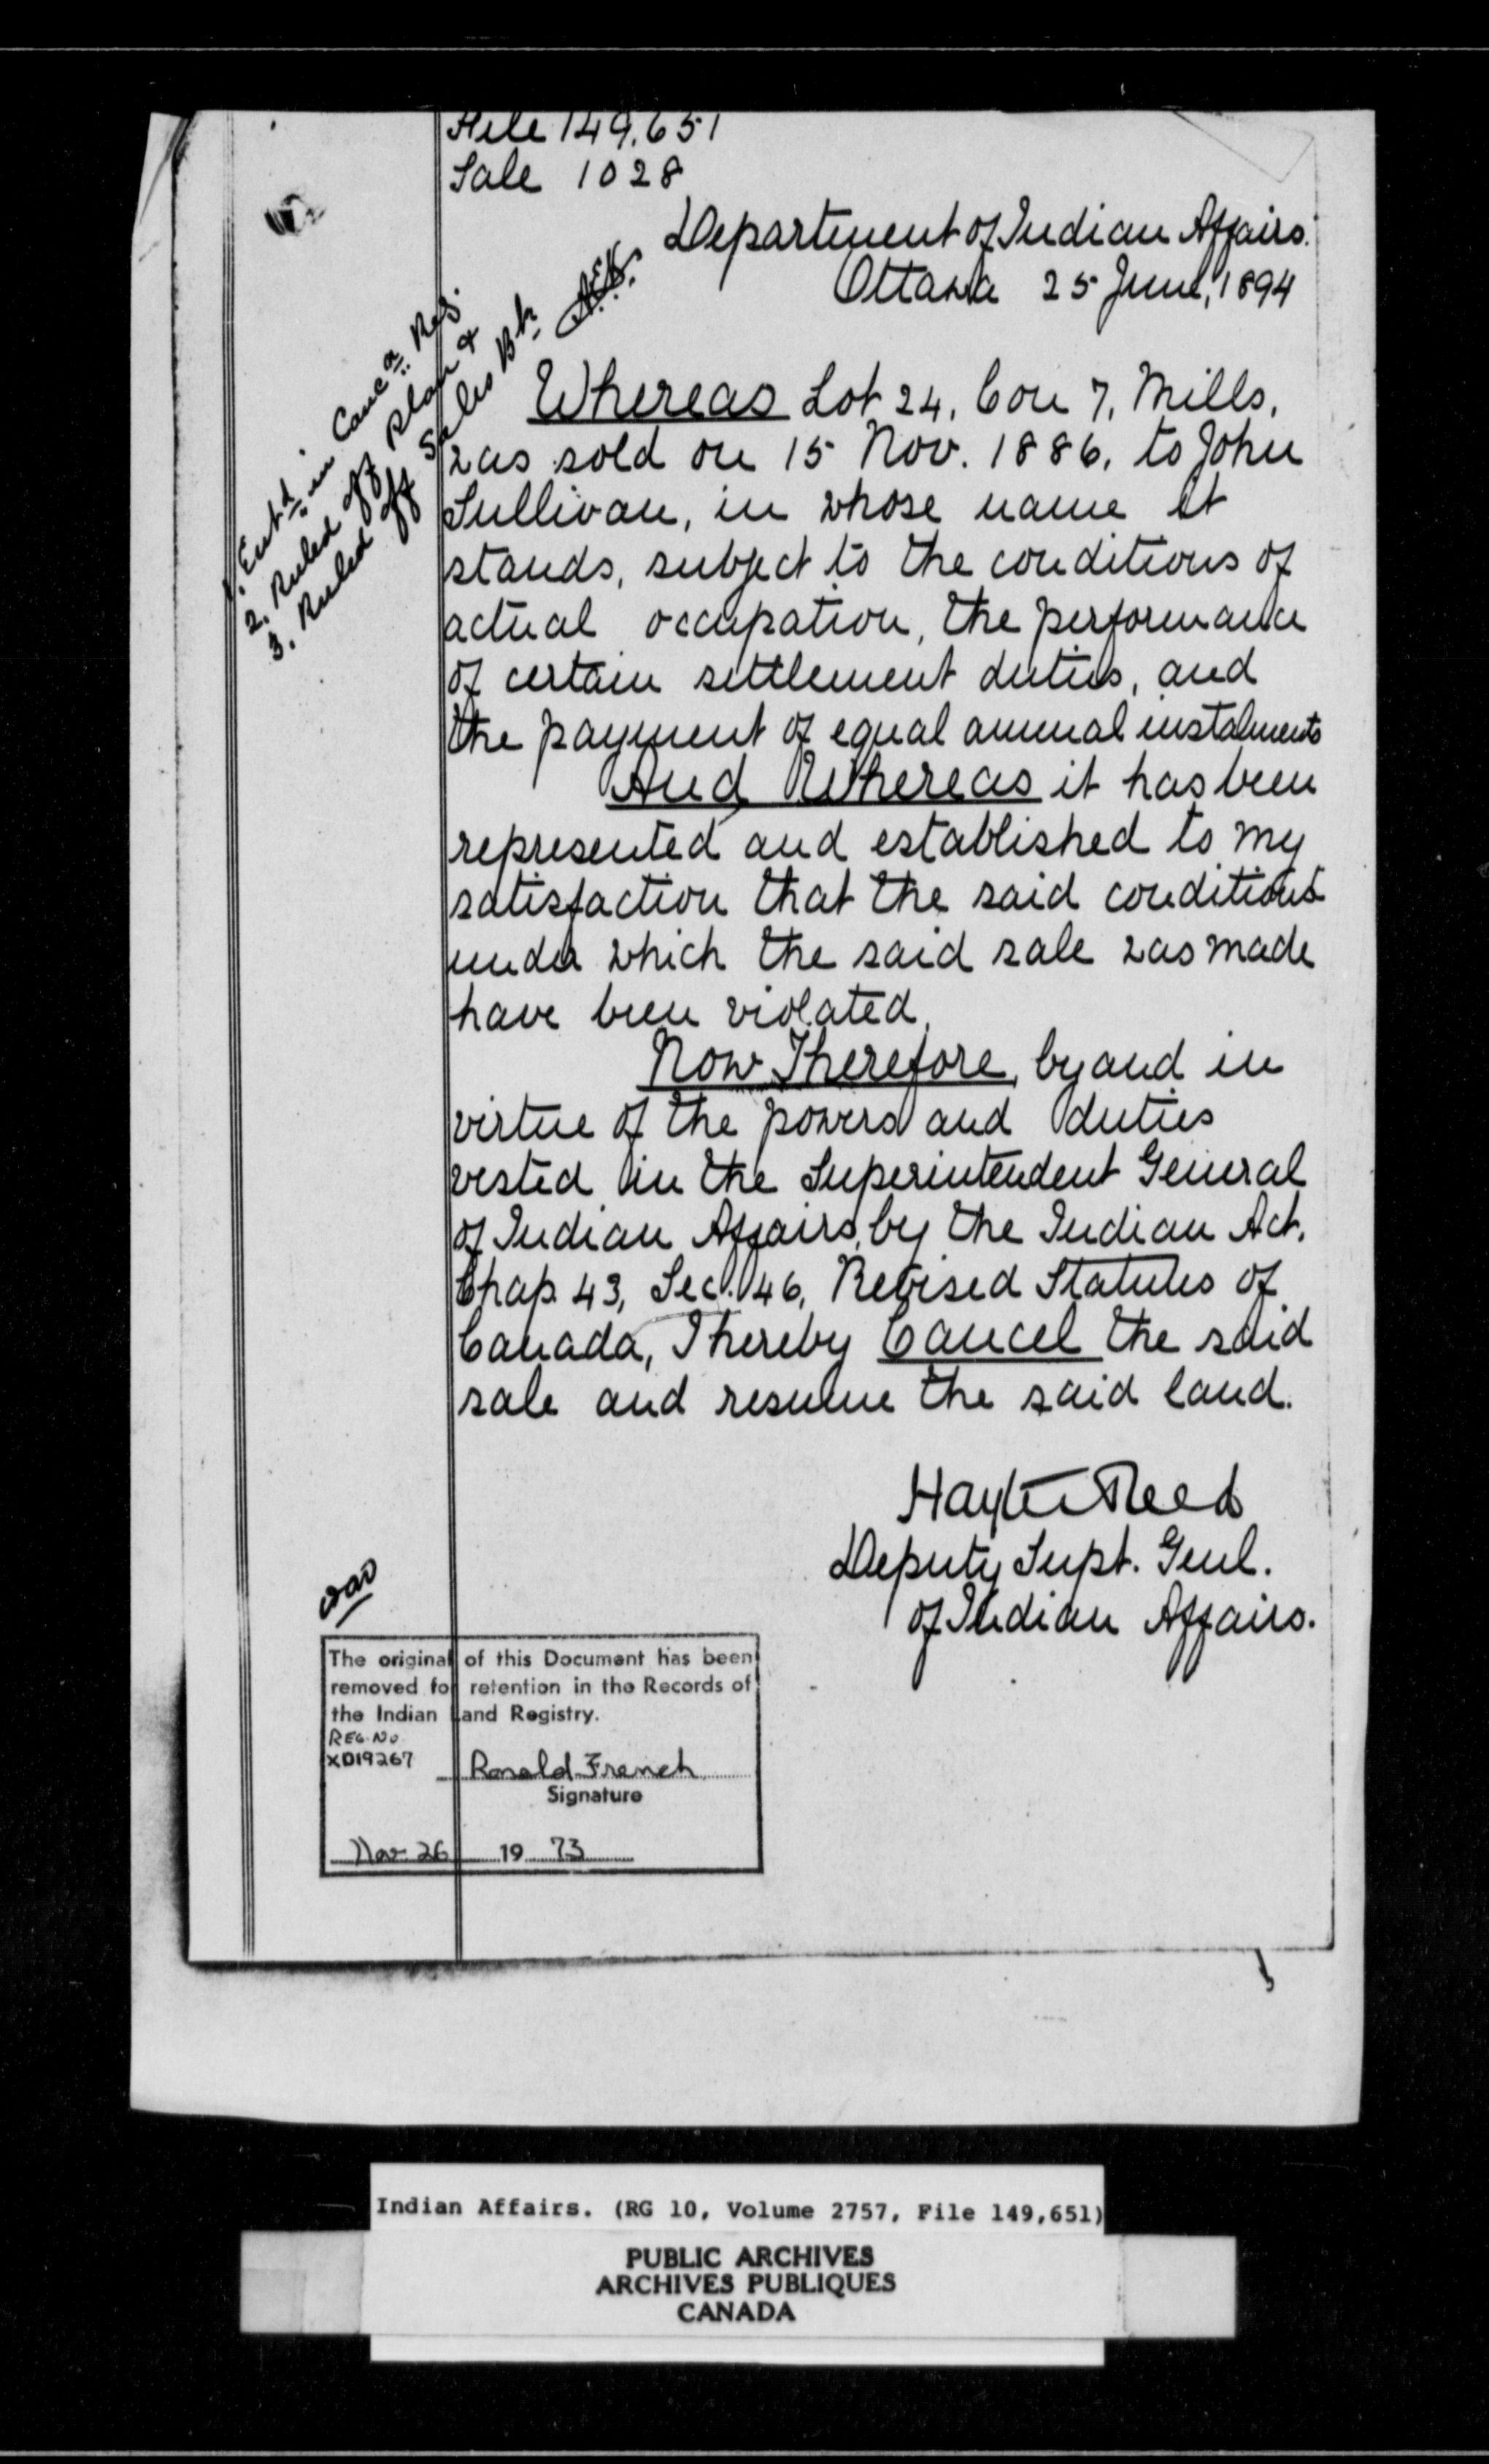 File 149.651
Sale 1028
Department of Indian Affairs.
Ottawa 25 June, 1894
1. Entd. in Canc. Reg.
2. Ruled off Plan &
3. Ruled off Sales Bk
Whereas Lot 24, Con 7, Mills,
was sold on 15 Nov. 1886, to John
Sullivan, in whose name it
stands, subject to the conditions of
actual occupation, the performance
of certain settlement duties, and
the payment of equal annual instalments
And Whereas it has been
represented and established to my
satisfaction that the said conditions
under which the said sale was made
have been violated,
Now Therefore, by and in
virtue of the powers and duties
vested in the Superintendent General
of Indian Affairs, by the Indian Act,
Chap. 43, Sec. 46, Revised Statutes of
Canada, I hereby Cancel the said
sale and resume the said land.
Hayter Reed
Deputy Supt. Genl.
of Indian Affairs.
The original of this Document has been
removed for retention in the Records of
the Indian Land Registry.
REG. NO
XD19267
Ronald French
Signature
Nov 26 19 73
Indian Affairs. (RG 10, Volume 2757, File 149,651)
PUBLIC ARCHIVES
ARCHIVES PUBLIQUES
CANADA